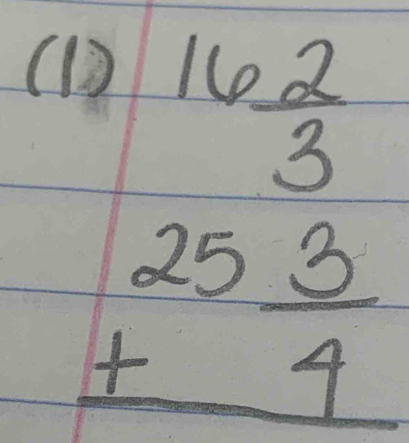 (1) 16 2/3
25 3/4
+